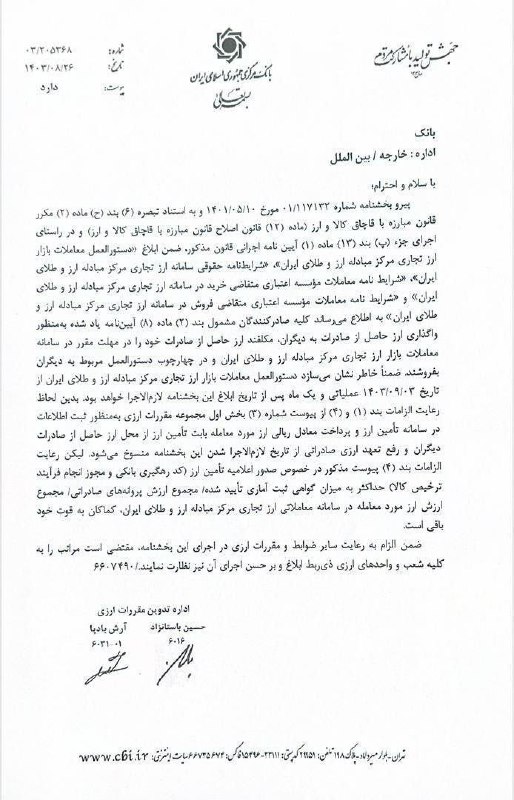 جهش تولید با مشارکت مردم
بانک مرکزی جمهوری اسلامی ایران
بسمه تعالی
شماره: ۰۳/۲۰۵۳۶۸
تاریخ: ۱۴۰۳/۰۸/۲۶
پیوست: دارد
بانک
اداره: خارجه / بین الملل
با سلام و احترام؛
پیرو بخشنامه شماره ۰۱/۱۱۷۱۳۲ مورخ ۱۴۰۱/۰۵/۱۰ و به استناد تبصره (۶) بند (ح) ماده (۲) مکرر
قانون مبارزه با قاچاق کالا و ارز (ماده (۱۲) قانون اصلاح قانون مبارزه با قاچاق کالا و ارز) و در راستای
اجرای جزء (پ) بند (۱۳) ماده (۱) آیین نامه اجرائی قانون مذکور، ضمن ابلاغ «دستورالعمل معاملات بازار
ارز تجاری مرکز مبادله ارز و طلای ایران»، «شرایط‌نامه حقوقی سامانه ارز تجاری مرکز مبادله ارز و طلای
ایران»، «شرایط نامه معاملات مؤسسه اعتباری متقاضی خرید در سامانه ارز تجاری مرکز مبادله ارز و طلای
ایران» و «شرایط نامه معاملات مؤسسه اعتباری متقاضی فروش در سامانه ارز تجاری مرکز مبادله ارز و
طلای ایران» به اطلاع می‌رساند کلیه صادرکنندگان مشمول بند (۲) ماده (۸) آیین‌نامه یاد شده به‌منظور
واگذاری ارز حاصل از صادرات به دیگران، مکلفند ارز حاصل از صادرات خود را در مهلت مقرر در سامانه
معاملات بازار ارز تجاری مرکز مبادله ارز و طلای ایران و در چهارچوب دستورالعمل مربوط به دیگران
بفروشند. ضمناً خاطر نشان می‌سازد دستورالعمل معاملات بازار ارز تجاری مرکز مبادله ارز و طلای ایران از
تاریخ ۱۴۰۳/۰۹/۰۳ عملیاتی و یک ماه پس از تاریخ ابلاغ این بخشنامه لازم‌الاجرا خواهد بود. بدین لحاظ
رعایت الزامات بند (۱) و (۴) از پیوست شماره (۳) بخش اول مجموعه مقررات ارزی به‌منظور ثبت اطلاعات
در سامانه تأمین ارز و پرداخت معادل ریالی ارز مورد معامله بابت تأمین ارز از محل ارز حاصل از صادرات
دیگران و رفع تعهد ارزی صادراتی از تاریخ لازم‌الاجرا شدن این بخشنامه منسوخ می‌شود. لیکن رعایت
الزامات بند (۴) پیوست مذکور در خصوص صدور اعلامیه تأمین ارز (کد رهگیری بانکی و مجوز انجام فرآیند
ترخیص کالا) حداکثر به میزان گواهی ثبت آماری تأیید شده/ مجموع ارزش پروانه‌های صادراتی/ مجموع
ارزش ارز مورد معامله در سامانه معاملاتی ارز تجاری مرکز مبادله ارز و طلای ایران، کماکان به قوت خود
باقی است.
ضمن الزام به رعایت سایر ضوابط و مقررات ارزی در اجرای این بخشنامه، مقتضی است مراتب را به
کلیه شعب و واحدهای ارزی ذی‌ربط ابلاغ و بر حسن اجرای آن نیز نظارت نمایند./ ۶۶۰۷۴۹۰
اداره تدوین مقررات ارزی
حسین باستانزاد آرش بادپا
۶۰۱۶ ۶۰۳۱-۰۱
تهران - بلوار میرداماد - پلاک ۱۹۸ تلفن: ۲۹۹۵۱ کدپستی: ۱۵۴۹۶-۳۳۱۱۱ فاکس: ۶۶۷۳۵۶۷۴ سایت اینترنتی: www.cbi.ir